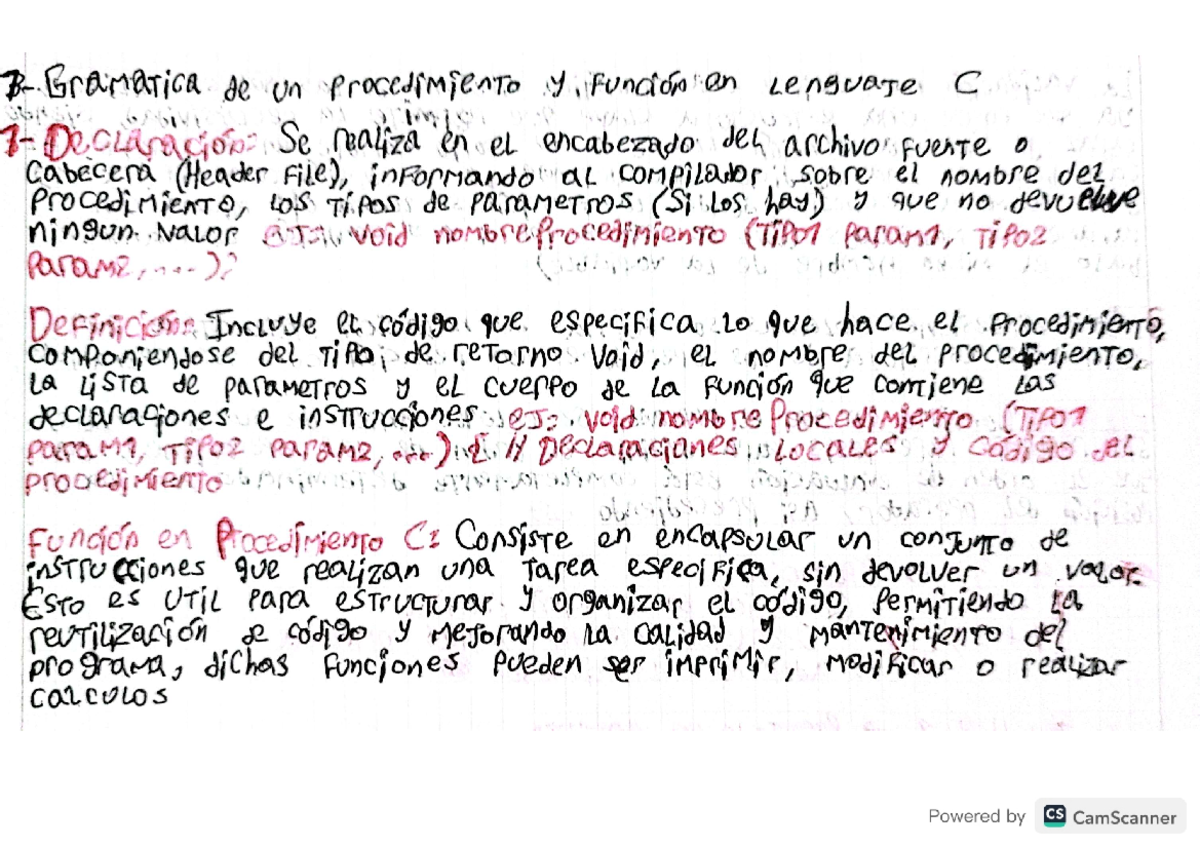 3- Gramatica de un Procedimiento y función en Lenguaje C
1- Declaración: Se realiza en el encabezado del archivo fuente o
Cabecera (Header File), informando al compilador sobre el nombre del
Procedimiento, los tipos de parametros (Si los hay) y que no devuelve
ningun valor ej: void nombreProcedimiento (Tipo1 param1, Tipo2
param2, ...);
Definición: Incluye el código que especifica lo que hace el Procedimiento,
componiendose del tipo de retorno void, el nombre del procedimiento,
la lista de parametros y el cuerpo de la función que contiene las
declaraciones e instrucciones ej: void nombreProcedimiento (Tipo1
param1, Tipo2 param2, ...) { // Declaraciones Locales y Código del
procedimiento
Función en Procedimiento C: Consiste en encapsular un conjunto de
instrucciones que realizan una tarea especifica, sin devolver un valor.
Esto es util para estructurar y organizar el código, permitiendo la
reutilización de código y mejorando la calidad y mantenimiento del
programa, dichas funciones pueden ser imprimir, modificar o realizar
calculos
Powered by CS CamScanner